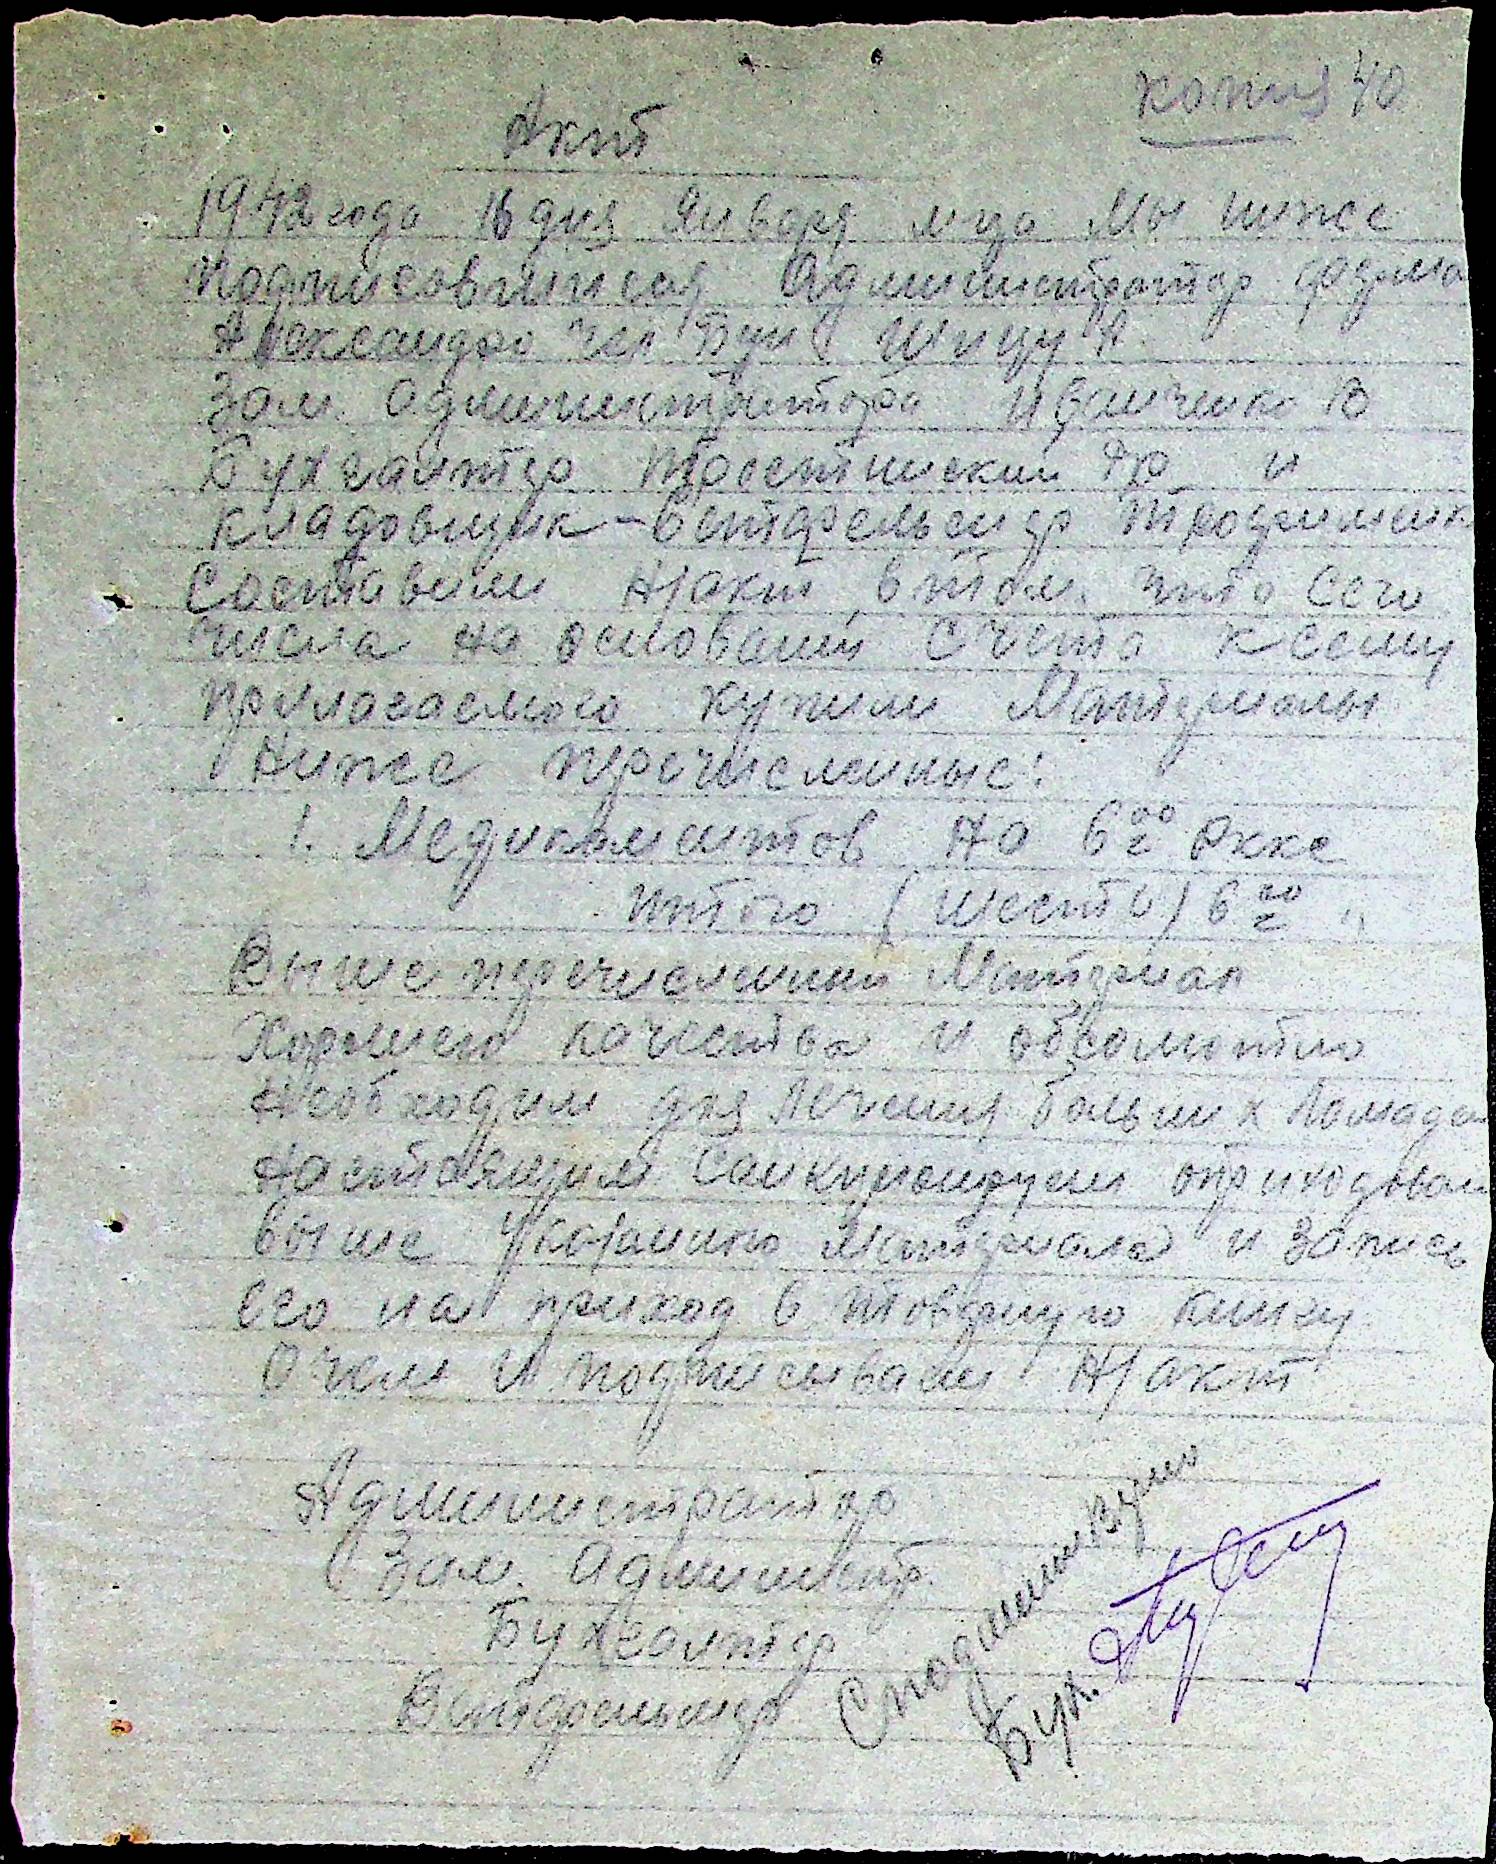 копия 40
Акт
1942 года 16 дня Января м-ца Мы ниже
подписавшиися Администратор фермы
Александро чел Бун Шицу А.
Зам. администратора Иванченко В
Бухгалтер Тростинский Фр и
кладовщик-Ветфельшер Трофименк
Составили н/акт в том. что сего
числа на основании счета к сему
прилагаемого купили Материалы
Ниже перечисленные:
1. Медикаментов на 6 00 Rккс
Итого (шесть) 6 00 "
Выше перечисленный Материал
Хорошего качества и абсолютно
Необходим для лечения больных Лошадей
Настоящим оприходовали
выше указанного Материала и запись
его на приход в товарную книгу.
О чем и подписываем н/акт
Администратор
Зам. Админист.
Бухгалтер
Ветфельшер
С подлинным верно
Бух.